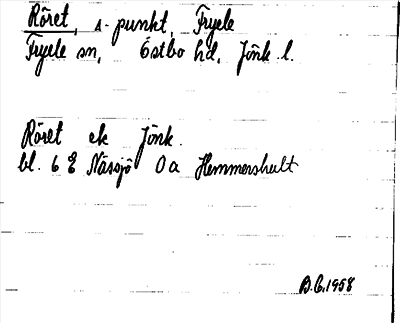 Röret, s-punkt, Fryele
Fryele sn, Östbo hd, Jönk l.
Röret ek Jönk.
bl. 6 E Nässjö 0a Hemmershult
B.G. 1958